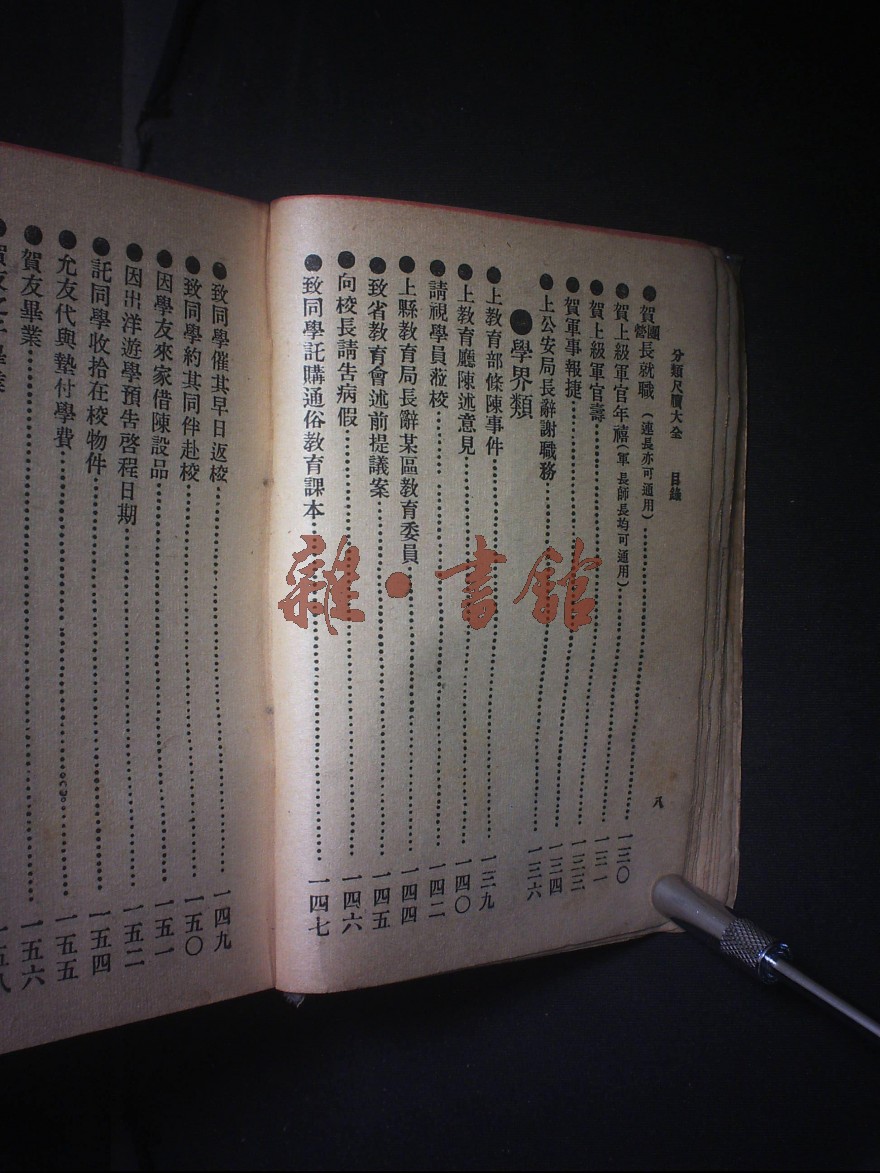 分類尺牘大全 目錄 八
●賀團營長就職(連長亦可通用)……一三〇
●賀上級軍官年禧(軍長師長均可通用)……一三一
●賀上級軍官壽……一三三
●賀軍事報捷……一三四
●上公安局長辭謝職務……一三六
●學界類
●上教育部條陳事件……一三九
●上教育廳陳述意見……一四〇
●請視學員蒞校……一四二
●上縣教育局長辭某區教育委員……一四四
●致省教育會述前提議案……一四五
●向校長請吿病假……一四六
●致同學託購通俗教育課本……一四七
●致同學催其早日返校……一四九
●致同學約其同伴赴校……一五〇
●因學友來家借陳設品……一五一
●因出洋遊學預吿啓程日期……一五二
●託同學收拾在校物件……一五四
●允友代與墊付學費……一五五
●賀友畢業……一五六
雜·書館